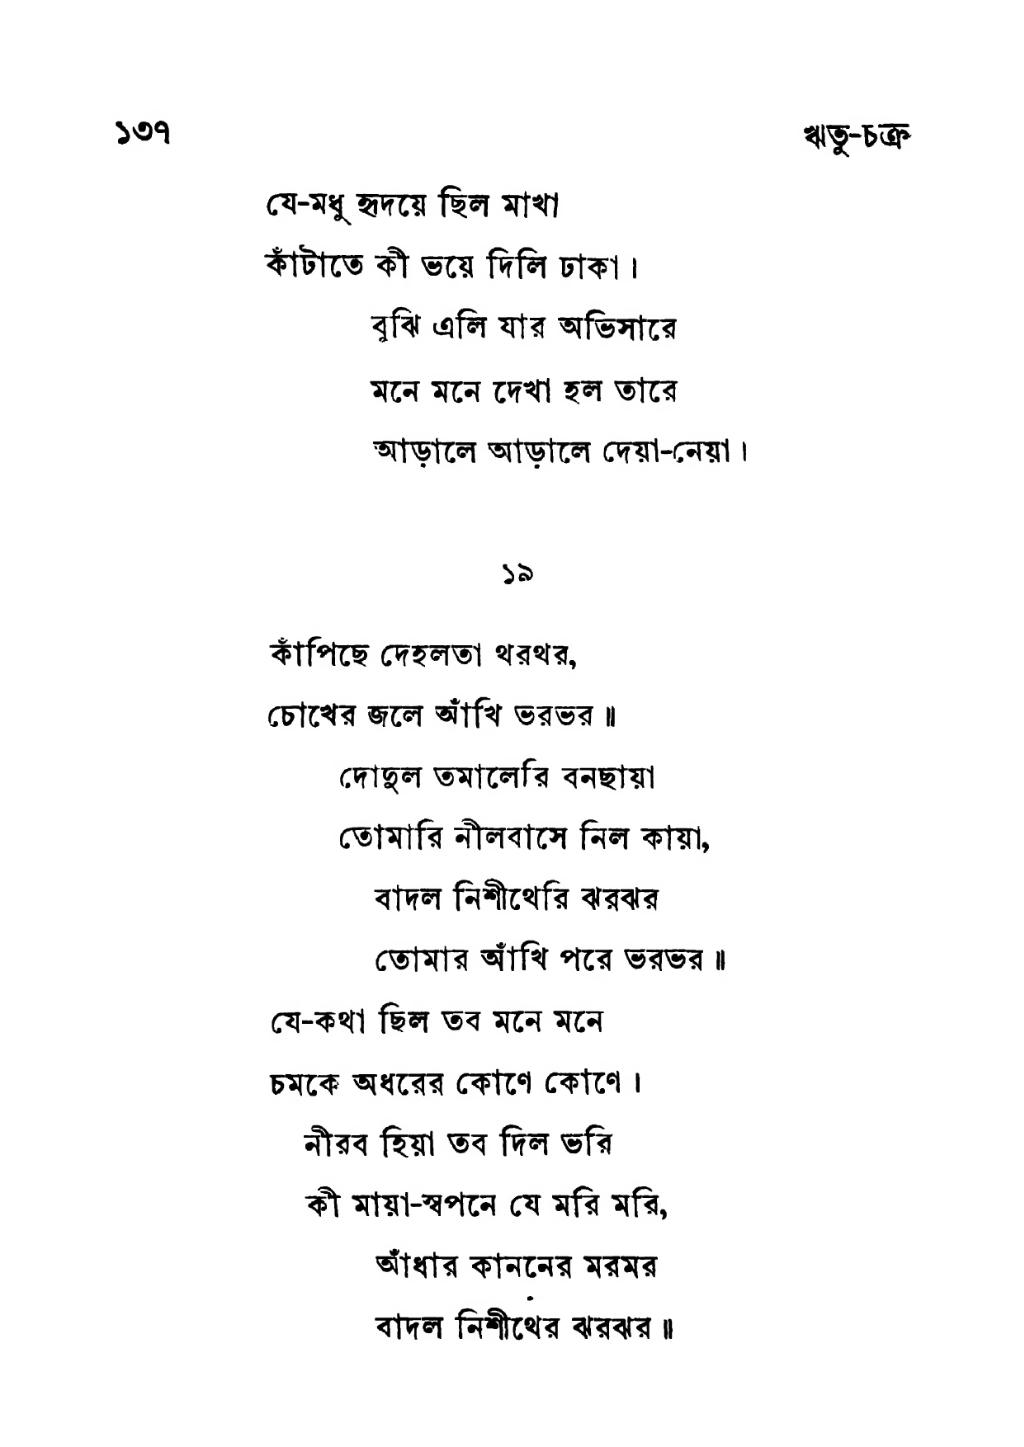 ১৩৭ ঋতু-চক্র
যে-মধু হৃদয়ে ছিল মাখা
কাঁটাতে কী ভয়ে দিলি ঢাকা।
বুঝি এলি যার অভিসারে
মনে মনে দেখা হল তারে
আড়ালে আড়ালে দেয়া-নেয়া।
১৯
কাঁপিছে দেহলতা থরথর,
চোখের জলে আঁখি ভরভর॥
দোদুল তমালেরি বনছায়া
তোমারি নীলবাসে নিল কায়া,
বাদল নিশীথেরি ঝরঝর
তোমার আঁখি পরে ভরভর॥
যে-কথা ছিল তব মনে মনে
চমকে অধরের কোণে কোণে।
নীরব হিয়া তব দিল ভরি
কী মায়া-স্বপনে যে মরি মরি,
আঁধার কাননের মরমর
বাদল নিশীথের ঝরঝর॥